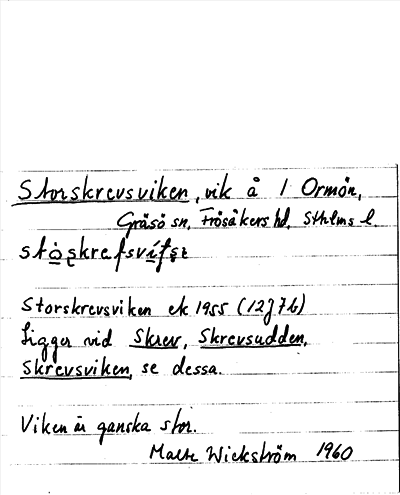 Storskrevsviken, vik å 1 Ormön,
Gräsö sn, Frösåkers hd, Sthlms l.
Storskrevsviken ek 1955 (12J7b)
Ligger vid Skrev, Skrevsudden,
Skrevsviken, se dessa.
Viken är ganska stor.
Malte Wickström 1960